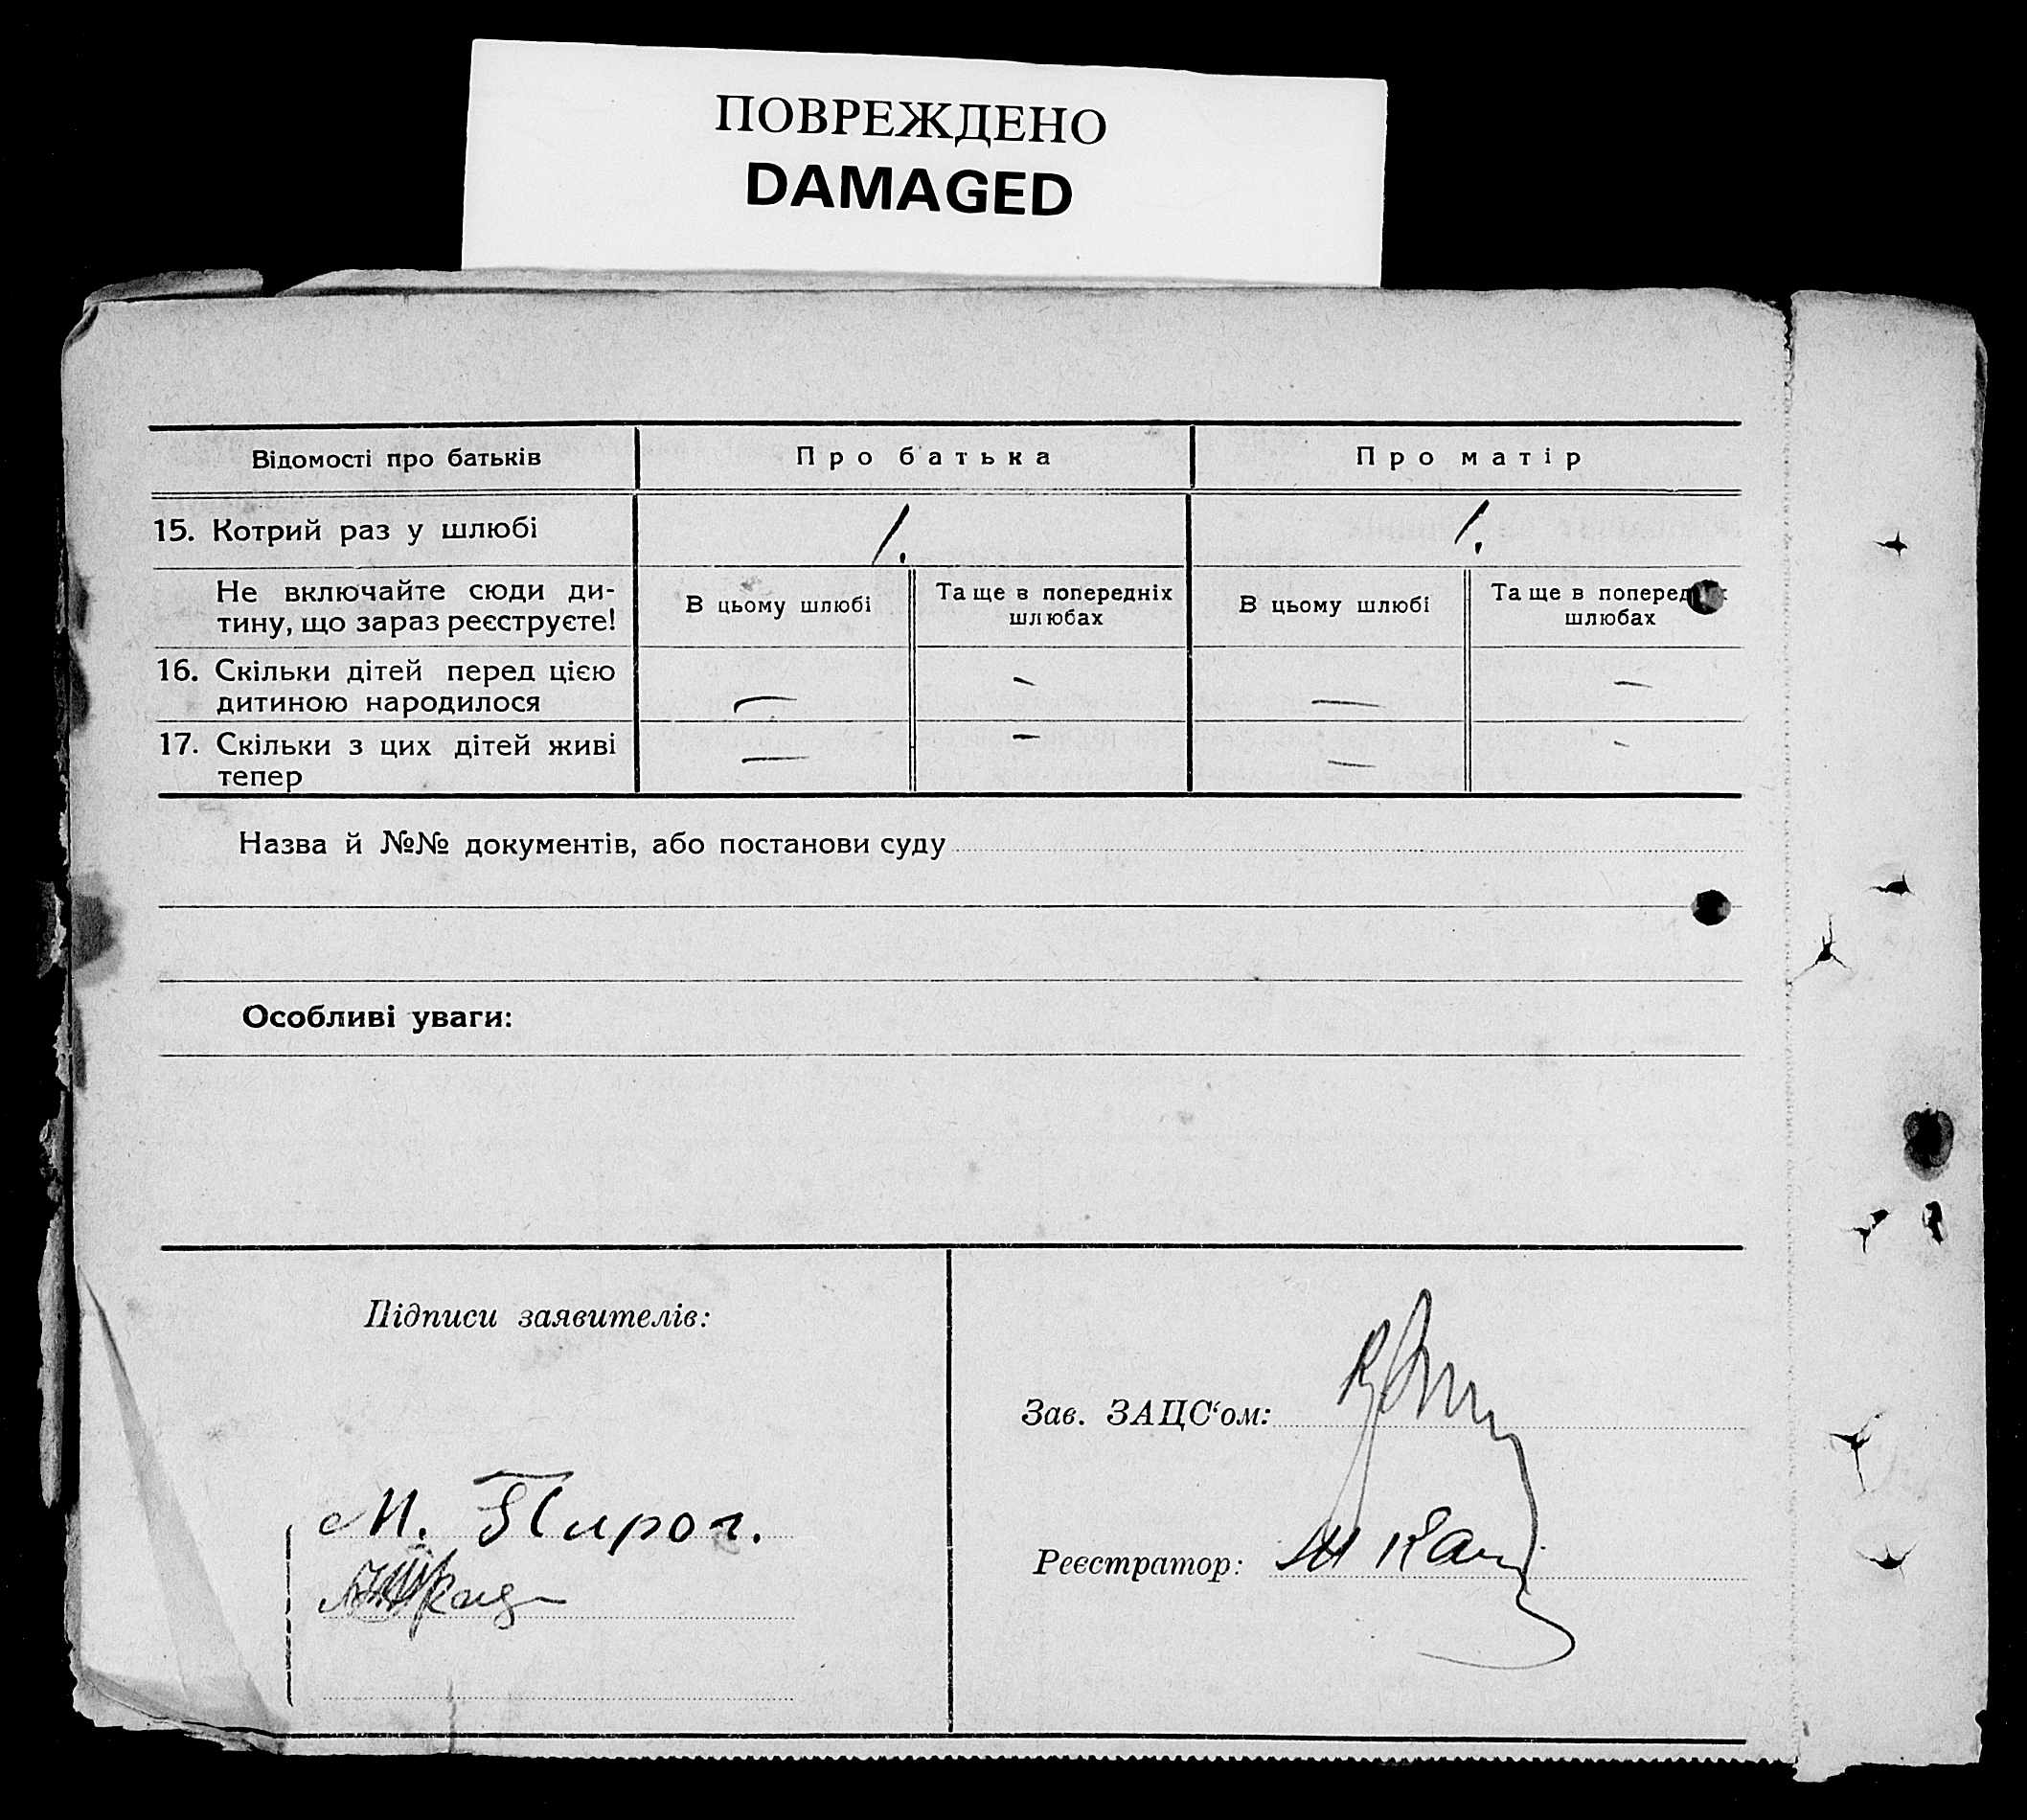 ПОВРЕЖДЕНО
DAMAGED
Відомості про батьків
Про батька
Про матір
15. Котрий раз у шлюбі
1.
1.
Не включайте сюди ди-
тину, що зараз реєструєте!
В цьому шлюбі
Та ще в попередніх
шлюбах
В цьому шлюбі
Та ще в поперед
шлюбах
16. Скільки дітей перед цією
дитиною народилося
— — — —
17. Скільки з цих дітей живі
тепер
— — — —
Назва й №№ документів, або постанови суду
Особливі уваги:
Підписи заявителів:
Зав. ЗАЦС‘ом:
М. Пирог.
Реєстратор: